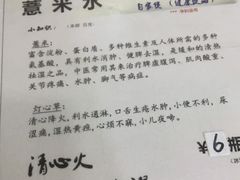 薏米水
小知识：
薏米：
富含淀粉、蛋白质、多种维生素及人体所需的多种
氨基酸，具有利水消肿、健脾去湿、
祛湿之品，中医常用其来治疗脾虚腹泻、肌肉酸重、
关节疼痛、水肿、脚气等病症。
灯心草：
清心降火，利水通淋，口舌生疮水肿，小便不利，尿
涩痛，湿热黄疸，心烦不寐，小儿夜啼。
清心火
¥6瓶